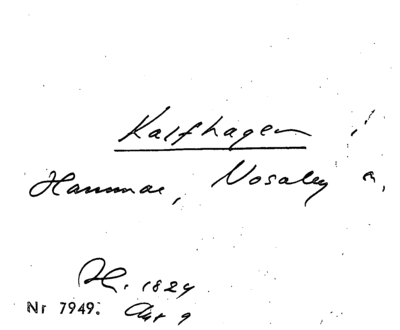 Kalfhagen,
Hammar, Nosaby s,
Fr. 1824
Nr 7949. Akt 9